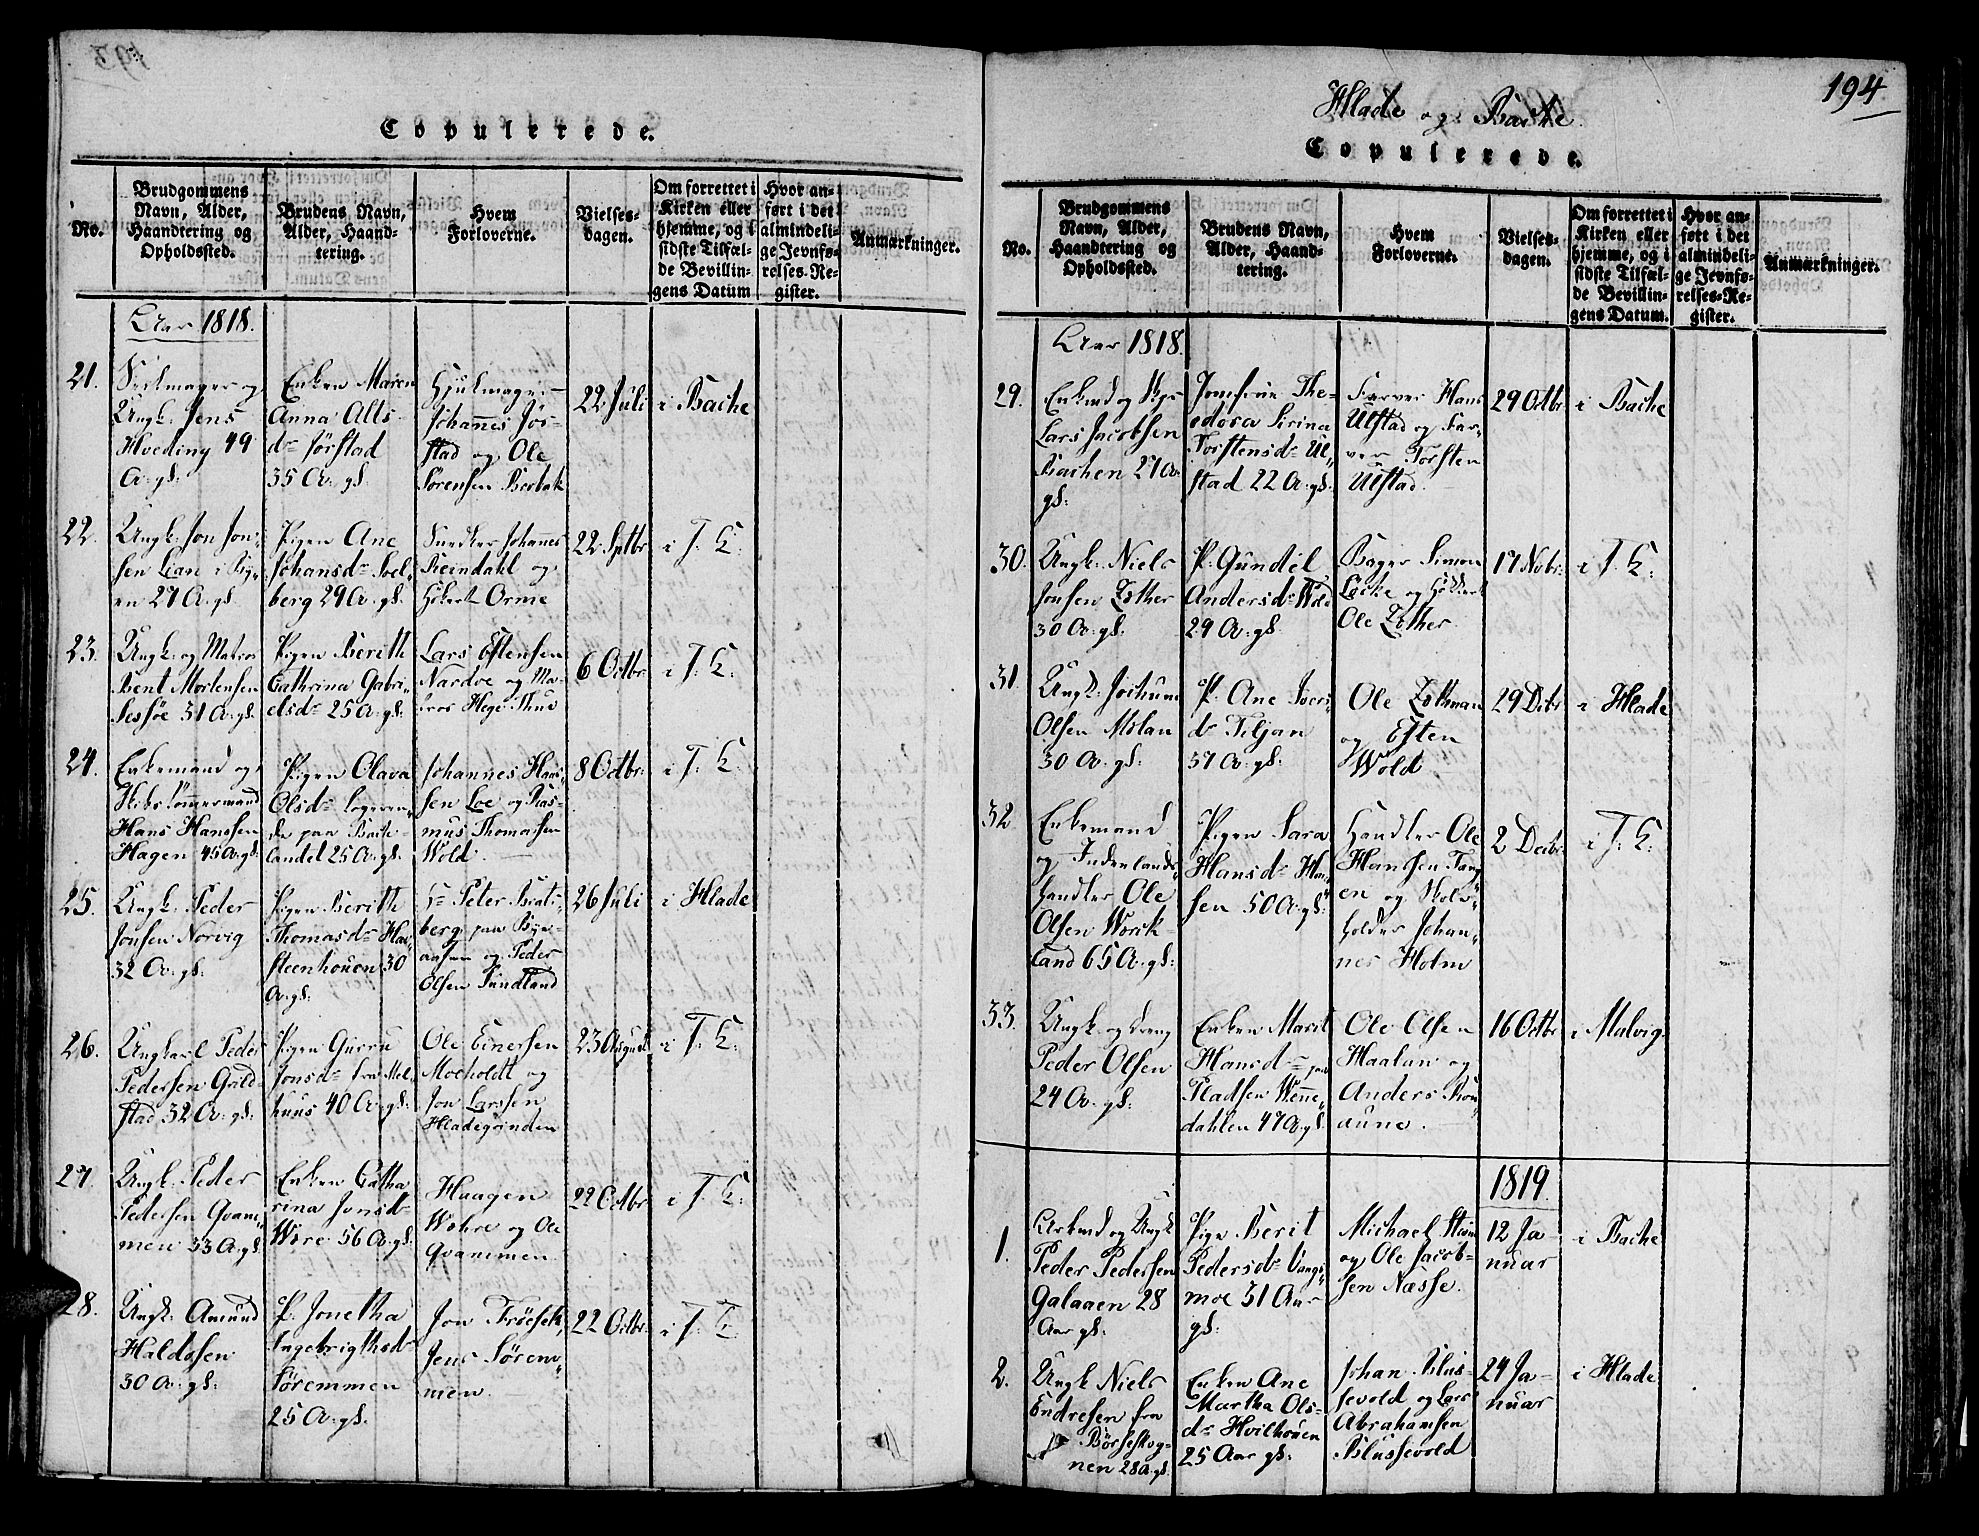 Copulerede.
No.
Brudgommens
Navn, Alder,
Haandtering og
Opholdssted.
Brudens Navn,
Alder, Haand-
tering.
Hvem
Forloverne.
Vielses-
dagen.
Om forrettet i
Kirken eller
hjemme, og i
sidste Tilfæl-
de Bevillin-
gens Datum
Hvor an-
ført i det
almindeli-
ge Jevnfø-
relses-Re-
gister.
Anmærkninger.
Aar 1818.
21.
og
Ungk: Jens
Hveding 49
A. gl:
Enken Maren
Anna Alts
dr Jørstad
35 A. gl.
Hjulmager
Johannes Jør-
stad og Ole
Sørensen Berbak
22 Juli
i Bache
22.
Ungk: Jon Jon-
sen Lian i
en 27 A. gl.
Pigen Ane
Johansdr Soel-
berg 29 A. gl.
Snedker Johannes
Reindahl og
Orme
22 Sptbr
i T. K:
23.
Ungk: og Matros
Bent Mortensen
31 A. gl.
Pigen Berith
Cathrina Gabri-
elsdr 25 A. gl.
Lars Estensen
Nardoe og Ma-
tros Hege Thue
6 Octbr
i T. K:
24.
Enkemand og
Skibstømmermand
Hans Hanssen
Hagen 45 A. gl:
Pigen Olava
Olsdr Logeren-
de paa Bakke-
landet 25 A. gl.
Johannes Han-
sen Loe og Ras-
mus Thomassen
Wold.
8 Octbr:
i T. K:
25.
Ungk: Peder
Jonsen Norvig
32 A. gl:
Pigen Berith
Thomasdr
Steenhouen 30
A. gl:
Hr Peter Brats-
berg paa Bye-
aasen og Peder
Olsen Sundland
26 Juli
i Hlade
26.
Ungkarl Peder
Pedersen Grild-
stad 32 A. gl:
Pigen Gurru
Jonsdr fra Mel-
huus 40 A. gl:
Ole Einersen
Moeholdt og
Jon Larssen
Hladegrinden
23 August
i T. K:
27.
Ungk: Peder
Pedersen Qvam-
men 33 A. gl.
Enken Catha
rina Jonsdr
Wire 56 A. gl.
Haagen
Wohre og Ole
Qvammen.
22 Octbr
i T. K:
28.
Ungk. Amund
Haldosen
30 A. gl:
P. Jonetha
Ingebrigthsdr
Søremmen
25 A. gl.
Jon Frøesek,
Jens Sørem-
men.
22 Octbr:
i T. K:
194
Hlade og Backe.
Copulerede.
No.
Brudgommens
Navn, Alder,
Haandtering og
Opholdssted.
Brudens Navn,
Alder, Haand-
tering.
Hvem
Forloverne.
Vielses-
dagen.
Om forrettet i
Kirken eller
hjemme, og i
sidste Tilfæl-
de Bevillin-
gens Datum.
Hvor an-
ført i det
almindeli-
ge Jevnfø-
relses-Re-
gister.
Anmærkninger.
Aar 1818.
29.
Enkmd og
Lars Jacobsen
Bachen 27 A.
gl:
Jomfrue The-
odora Sirina
Torstensdr Ul-
stad 22 A. gl:
Farver Hans
Ulstad og Far-
ver Torsten
Ulstad.
29 Octbr
i Bache
30.
Ungk: Niels
Jonsen Zother
30 A. gl:
P: Gundil
Andersdr Wold
29 A. gl.
Bager Simon
Løcke og
Ole Zother.
17 Nobr:
i T. K:
31
Ungk: Jochum
Olsen Molan
30 A. gl:
P. Ane Ivers-
dr Tiljan
37 A. gl:
Ole Zothman
og Esten
Wold
29 Decbr
i Hlade
32
Enkemand
og Indenlands-
handler Ole
Olsen Worck-
land 65 A. gl:
Pigen Sara
Hansdr Han-
sen 50 A. gl:
Handler Ole
Hansen Tang
en og Skole-
holder Johan-
nes Holm
2 Decbr
i T. K:
33.
Ungk og dreng
Peder Olsen
24 A. gl:
Enken Marit
Hansdr paa
Pladsen Wenne-
dahlen 47 A. gl.
Ole Olsen
Haalan og
Anders
aune.
16 Octbr
i Malvig.
1819.
1.
Arbmd og Ungk
Peder Pedersen
Galaaen 28
Aar gl:
Pige Berit
Pedersdr Vangs-
moe 31 Aar
gl:
Michael
og Ole Jacob-
sen Næsse.
12 Ja-
nuar
i Bache
2.
Ungk Niels
Endresen fra
Børseskog-
nen 28 A. gl.
Enken Ane
Martha Ols-
dr Hvilhouen
25 Aar gl:
Johan Blus-
sevold og Lars
Abrahamsen
Blussevold
24 Ja-
nuar
i Hlade